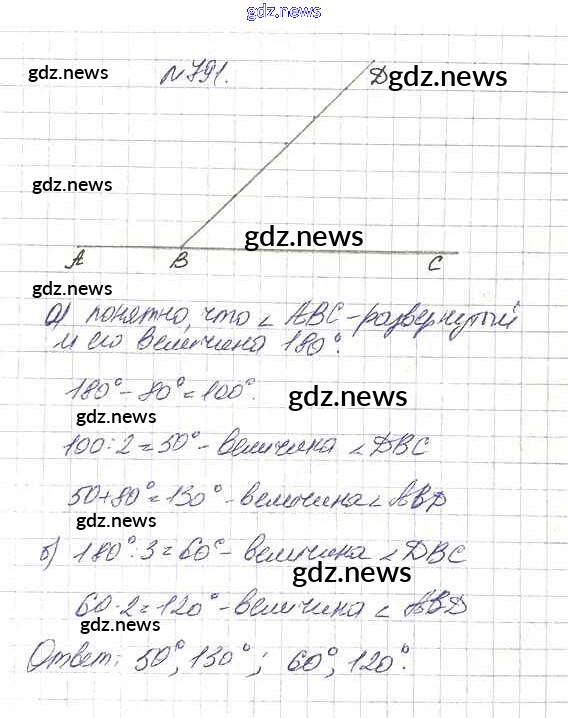 gdz.news
gdz.news
№791.
D
gdz.news
gdz.news
gdz.news
A B C
gdz.news
а) понятно, что ∠ ABC - развернутый
и его величина 180°.
180° - 80° = 100°.
gdz.news
gdz.news
100:2 = 50° - величина ∠DBC
50+80° = 130° - величина ∠ABD
gdz.news
б) 180°:3 = 60° - величина ∠DBC
gdz.news
60·2 = 120° - величина ∠ABD
gdz.news
Ответ: 50°, 130°; 60°, 120°.